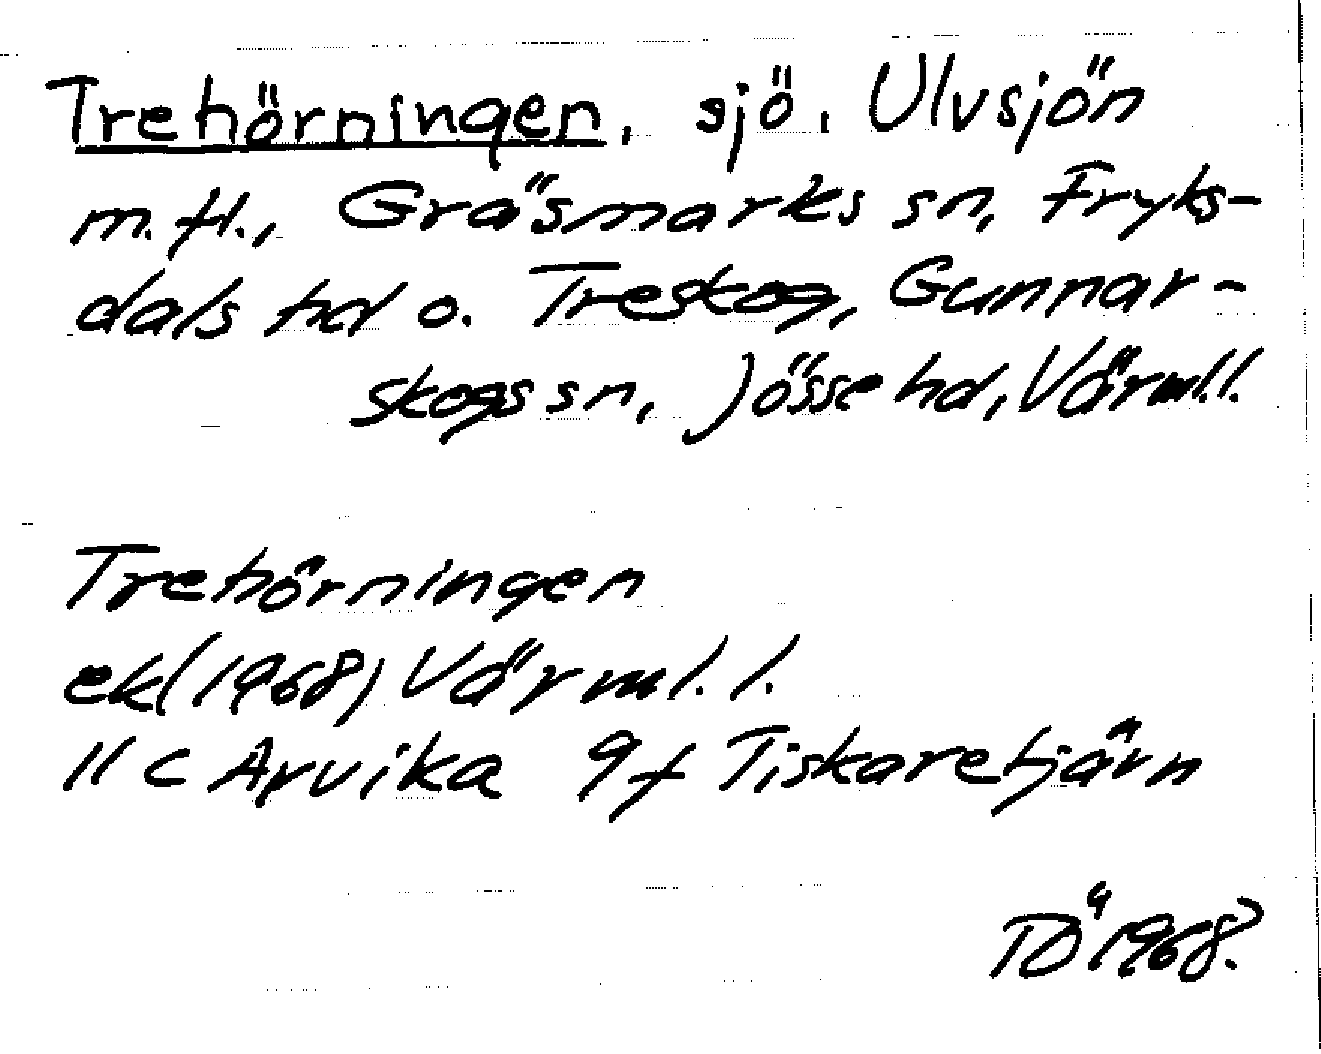 Trehörningen, sjö, Ulvsjön
m.fl., Gräsmarks sn, Fryks-
dals hd o. Treskog, Gunnar-
skogs sn, Jösse hd, Värml.l.
Trehörningen
ek(1968) Värml.l.
11 C Arvika 9f Tiskaretjärn
TÖ 1968.